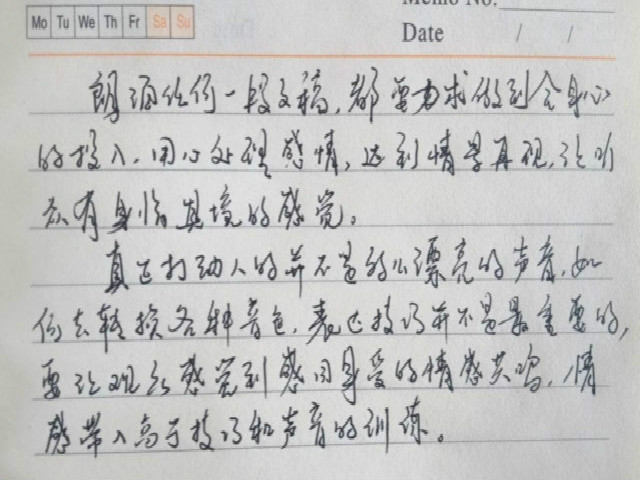 Memo No.
Mo Tu We Th Fr Sa Su
Date / /
朗诵任何一段文稿，都要力求做到全身心
的投入，用心处理感情，达到情景再现，让听
众有身临其境的感觉。
真正打动人的并不是的心漂亮的声音，如
何去转换各种音色，表达技巧并不是最重要的，
要让观众感觉到感同身受的情感共鸣，情
感带入高于技巧和声音的训练。